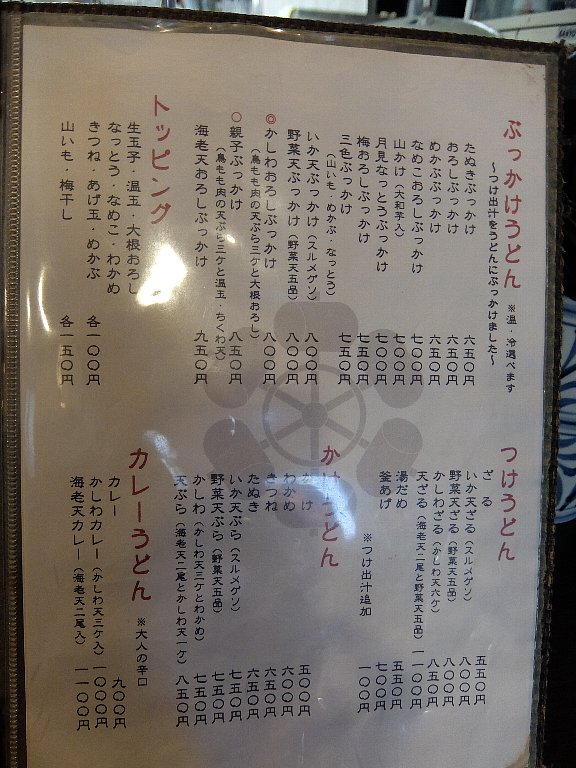 ぶっかけうどん ※温・冷選べます
〜つけ出汁をうどんにぶっかけました〜
たぬきぶっかけ 六五〇円
おろしぶっかけ 六五〇円
めかぶぶっかけ 六五〇円
なめこおろしぶっかけ 七〇〇円
山かけ(大和芋入) 七〇〇円
月見なっとうぶっかけ 七〇〇円
梅おろしぶっかけ 七五〇円
三色ぶっかけ 七五〇円
(山いも・めかぶ・なっとう)
いか天ぶっかけ(スルメゲソ) 八〇〇円
野菜天ぶっかけ(野菜天五品) 八〇〇円
◎かしわおろしぶっかけ 八〇〇円
(鳥もも肉の天ぷら三ケと大根おろし)
○親子ぶっかけ 八五〇円
(鳥もも肉の天ぷら三ケと温玉・ちくわ天)
海老天おろしぶっかけ 九五〇円
トッピング
生玉子・温玉・大根おろし
なっとう・なめこ・わかめ
きつね・あげ玉・めかぶ 各一〇〇円
山いも・梅干し 各一五〇円
つけうどん
ざる 五五〇円
いか天ざる(スルメゲソ) 八〇〇円
野菜天ざる(野菜天五品) 八〇〇円
かしわざる(かしわ天六ケ) 八五〇円
天ざる(海老天二尾と野菜天五品) 一一〇〇円
湯だめ 五五〇円
釜あげ 七〇〇円
※つけ出汁追加 一〇〇円
かけうどん
かけ 五〇〇円
わかめ 六〇〇円
きつね 六五〇円
たぬき 六五〇円
いか天ぷら(スルメゲソ) 七五〇円
野菜天ぷら(野菜天五品) 七五〇円
かしわ(かしわ天三ケとわかめ) 七五〇円
天ぷら(海老天二尾とかしわ天一ケ) 八五〇円
カレーうどん ※大人の辛口
カレー 九〇〇円
かしわカレー(かしわ天三ケ入) 一〇〇〇円
海老天カレー(海老天二尾入) 一一〇〇円